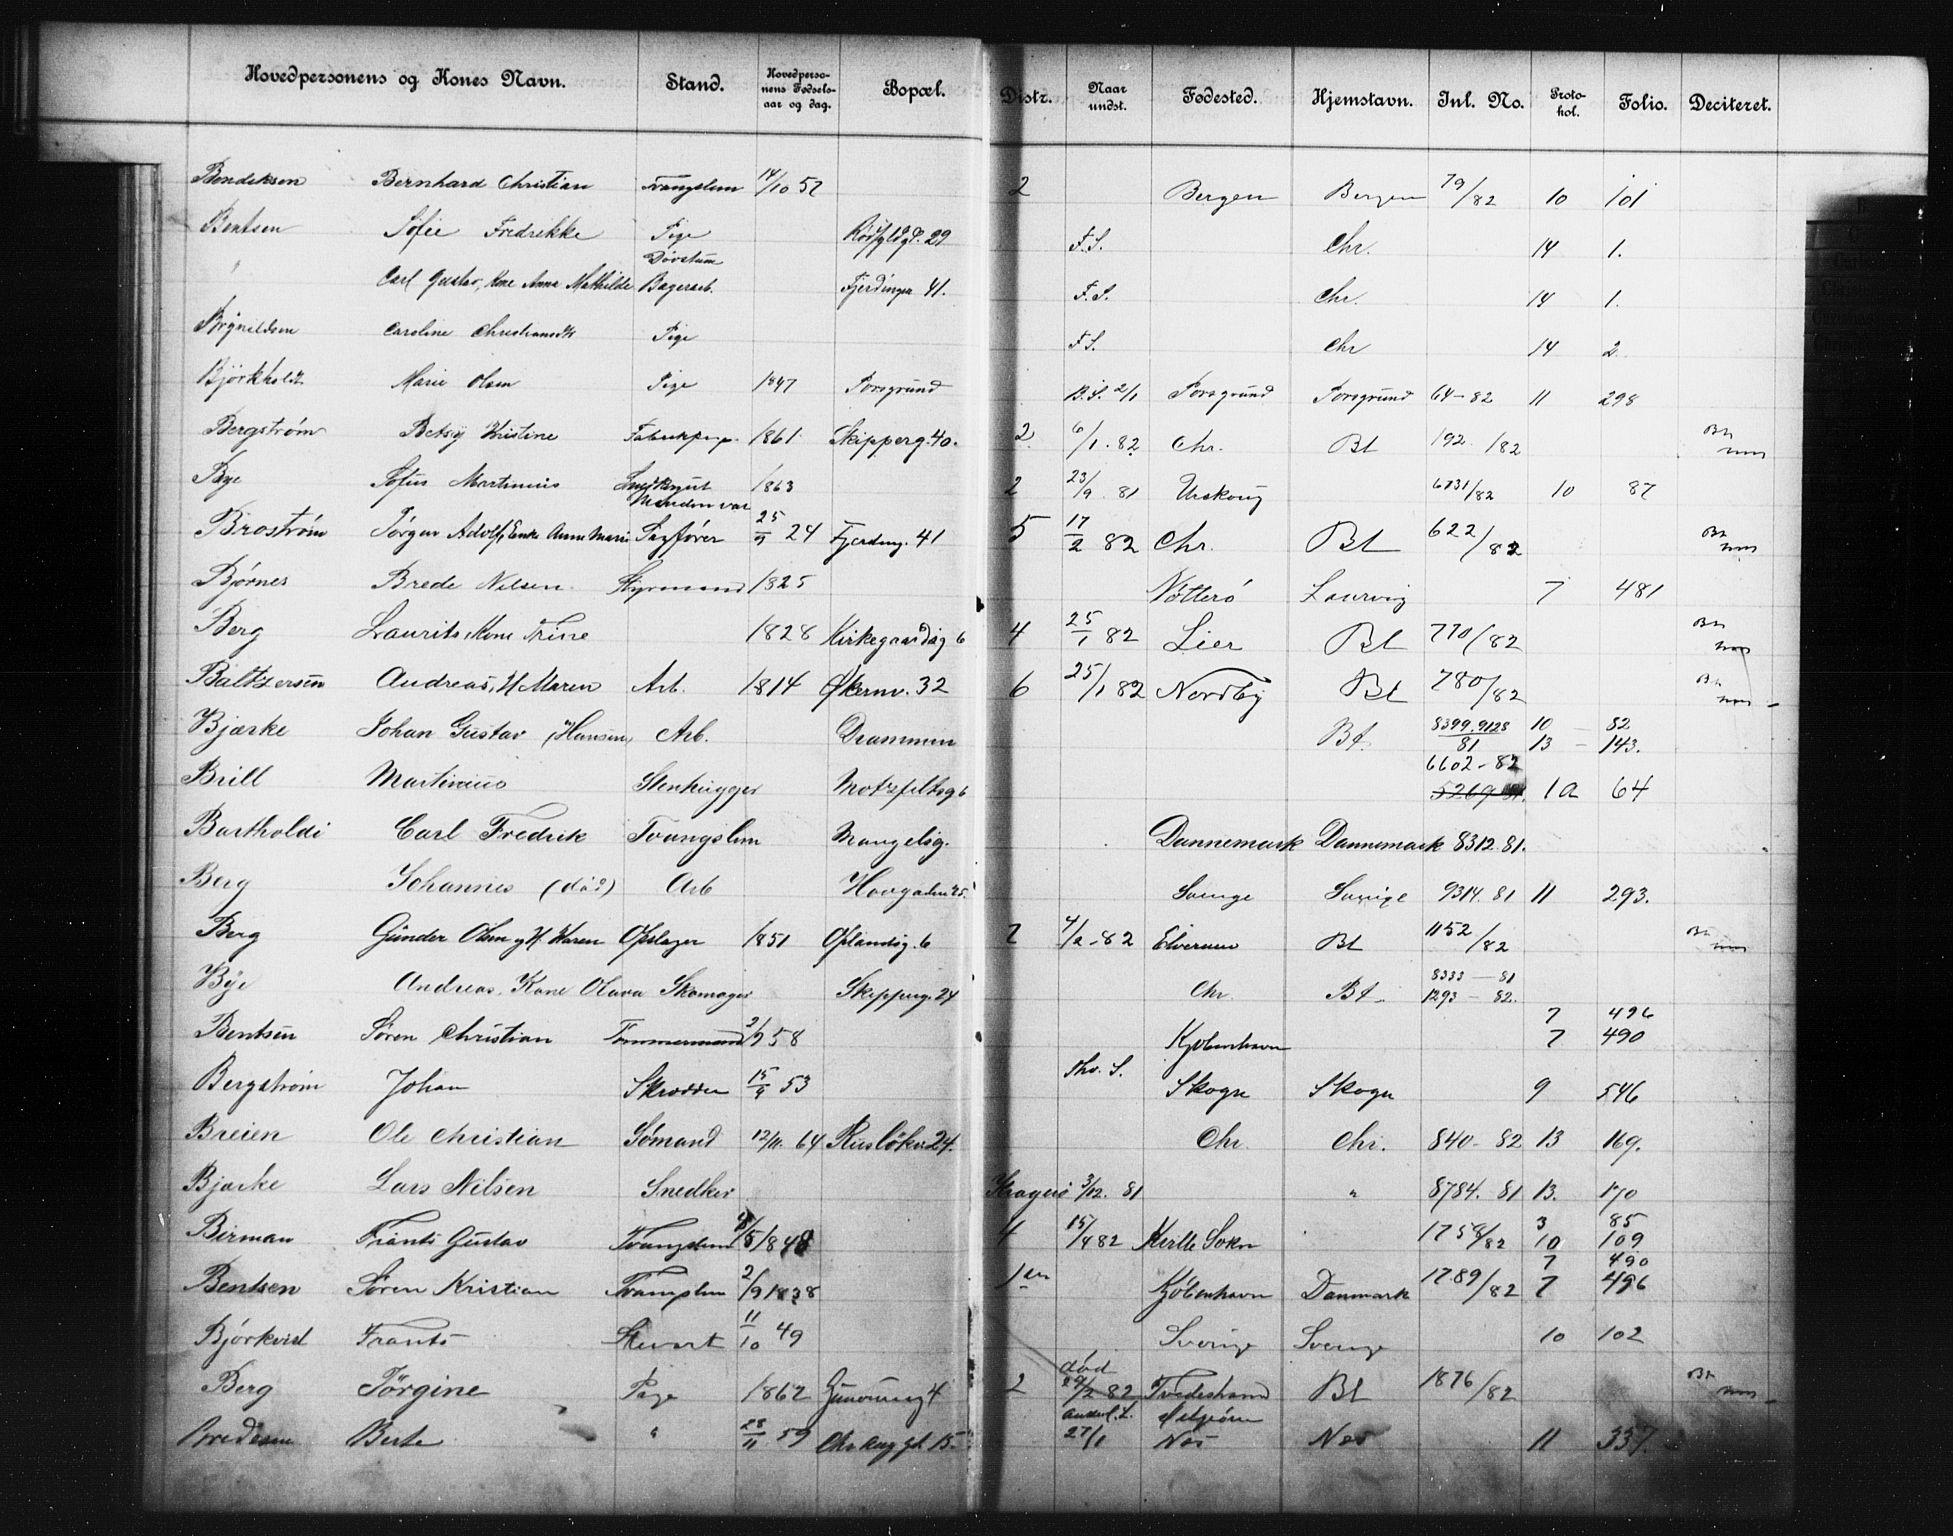 Hovedpersonens og Kones Navn. Stand. Hovedpersonens Fødselsaar og dag. Bopæl. Distr. Naar undst. Fødested. Hjemstavn. Inl. No. Protokol. Folio. Deciteret.
Bendiksen Bernhard Christian Tvangslem 14/10 57 2 Bergen Bergen 79/82 10 101
Bentsen Sofie Fredrikke Pige 29 F.S. Chr. 14 1.
" Carl Gustav, Kone Anna Mathilde Døvstum Bagerarb. Fjerdingen 41. F.S. Chr. 14 1.
Caroline Pige F.S. Chr 14 2
Bjørkholdt Marie Olsen Pige 1847 Porsgrund B.S. 2/1 Porsgrund Porsgrund 64-82 11 298
Bergstrøm Betsy Kristine 1861 Skipperg. 40. 2 6/1. 82 Chr. Bt 192/82
Bye Sofus Martinius 1863 2 23/9 81 Urskoug 6731/82 10 87
Brostrøm Jørgen Adolf, Enke Anne Marie Manden var Sagfører 25/9 24 Fjerding. 41 5 17/2 82 Chr. Bt 622/82
Bjørnes Brede Nilsen Styrmand 1825 Nøtterø Laurvig 7 481
Berg Laurits, Kone Trine 1828 Kirkegaardsg 6 4 25/1 82 Lier Bt 770/82
Baltzersen Andreas, H Maren Arb. 1814 Økernv. 32 6 25/1 82 Nordby Bt 780/82
Bjærke Johan Gustav (Hansen) Arb. Drammen Bt. 8399.9128/81 10 - 82 13 - 143.
Brill Martinius Stenhugger Motzfeltsg 6 6602-82 5269 81. 1a 64
Bartholdi Carl Fredrik Tvangslem Mangelsg. Dannemark Dannemark 8312.81.
Berg Johannes (død) Arb Hovgaden 25. Sverige Sverige 9314.81 11 293.
Berg Gunder Olsen og H. Karen Opslager 1851 Oplandsg. 6 2 4/2-82 Elverum Bt 1152/82
Bye Andreas, Kone Olava Skomager Skipperg. 24 Chr. Bt. 8333-81 1293-82.
Bentsen Søren Christian Tømmermand 2/9 58 Kjøbenhavn 7 496 7 490
Bergstrøm Johan Skrædder 15/9 53 Thv. S. Skogn Skogn 9 546
Breien Ole Christian Sømand 12/11. 64 Rusløkv. 24. Chr. Chr. 840-82 13 169.
Bjærke Lars Nilsen Snedker Kragerø 3/12. 81 " 8784.81 13. 170
Birman Frants Gustav Tvangslem /5 1848 4 15/4 82 Sokn 1758/82 3 85 10 109
Bentsen Søren Kristian Tvangslem 2/9 1838 1 Kjøbenhavn Danmark 1789/82 7 490 7 496
Bjørkvist Frants Stuert 11/10 49 Sverige Sverige 10 102
Berg Jørgine Pige 1862 4 2 død 24/2 82 Bt 1876/82
Bredesen Berte " 28/11 59 15 27/1 Nes Nes 11 337.